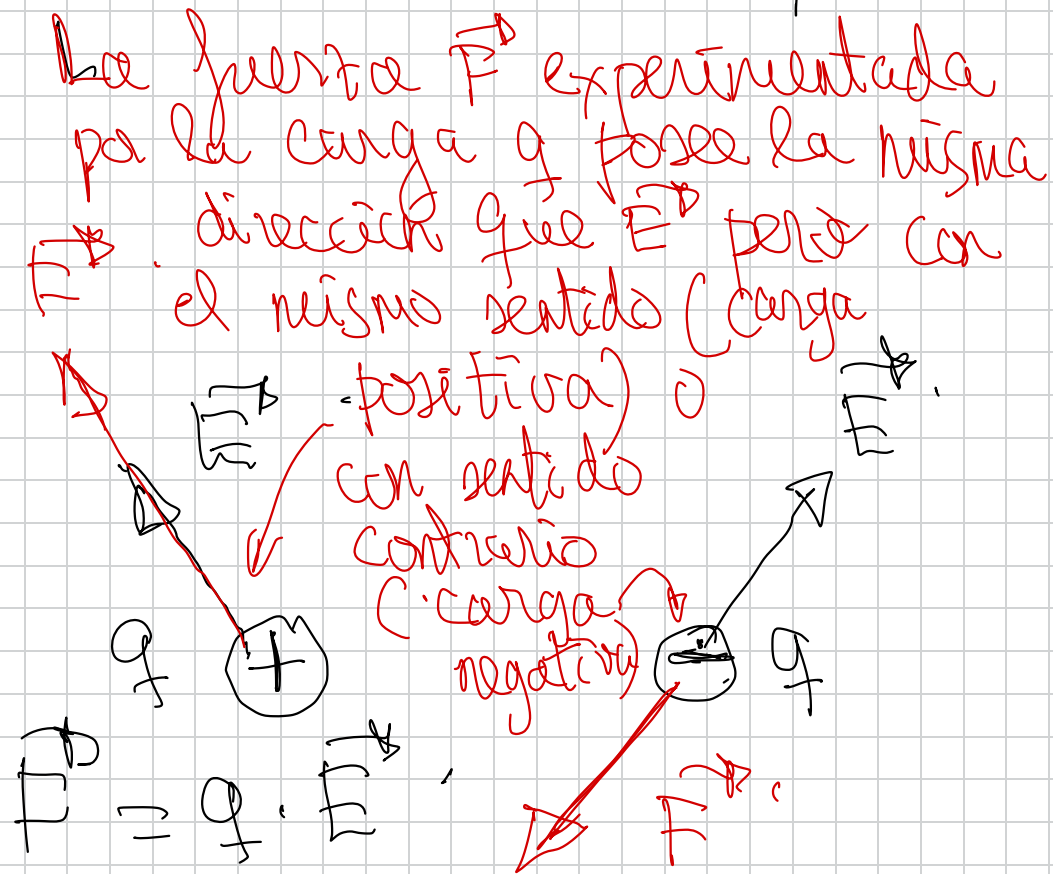 La fuerza F⃗ experimentada
por la carga q posee la misma
dirección que E⃗ pero con
el mismo sentido (carga
positiva) o
con sentido
contrario
(carga
negativa)
F⃗.
E⃗
E⃗.
q +
- q
F⃗ = q · E⃗.
F⃗.